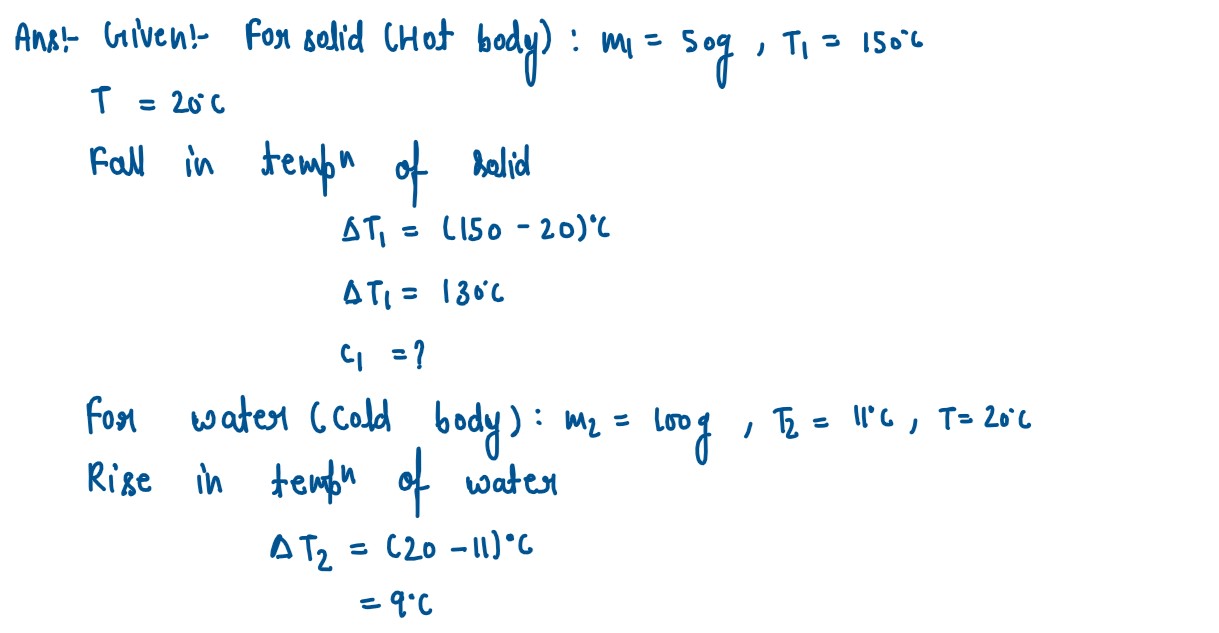 Ans:- Given:- For solid (Hot body) : m₁ = 50g , T₁ = 150°C
T = 20°C
Fall in tempⁿ of solid
ΔT₁ = (150 - 20)°C
ΔT₁ = 130°C
C₁ = ?
For water (Cold body) : m₂ = 100g , T₂ = 11°C , T = 20°C
Rise in tempⁿ of water
ΔT₂ = (20 - 11)°C
= 9°C